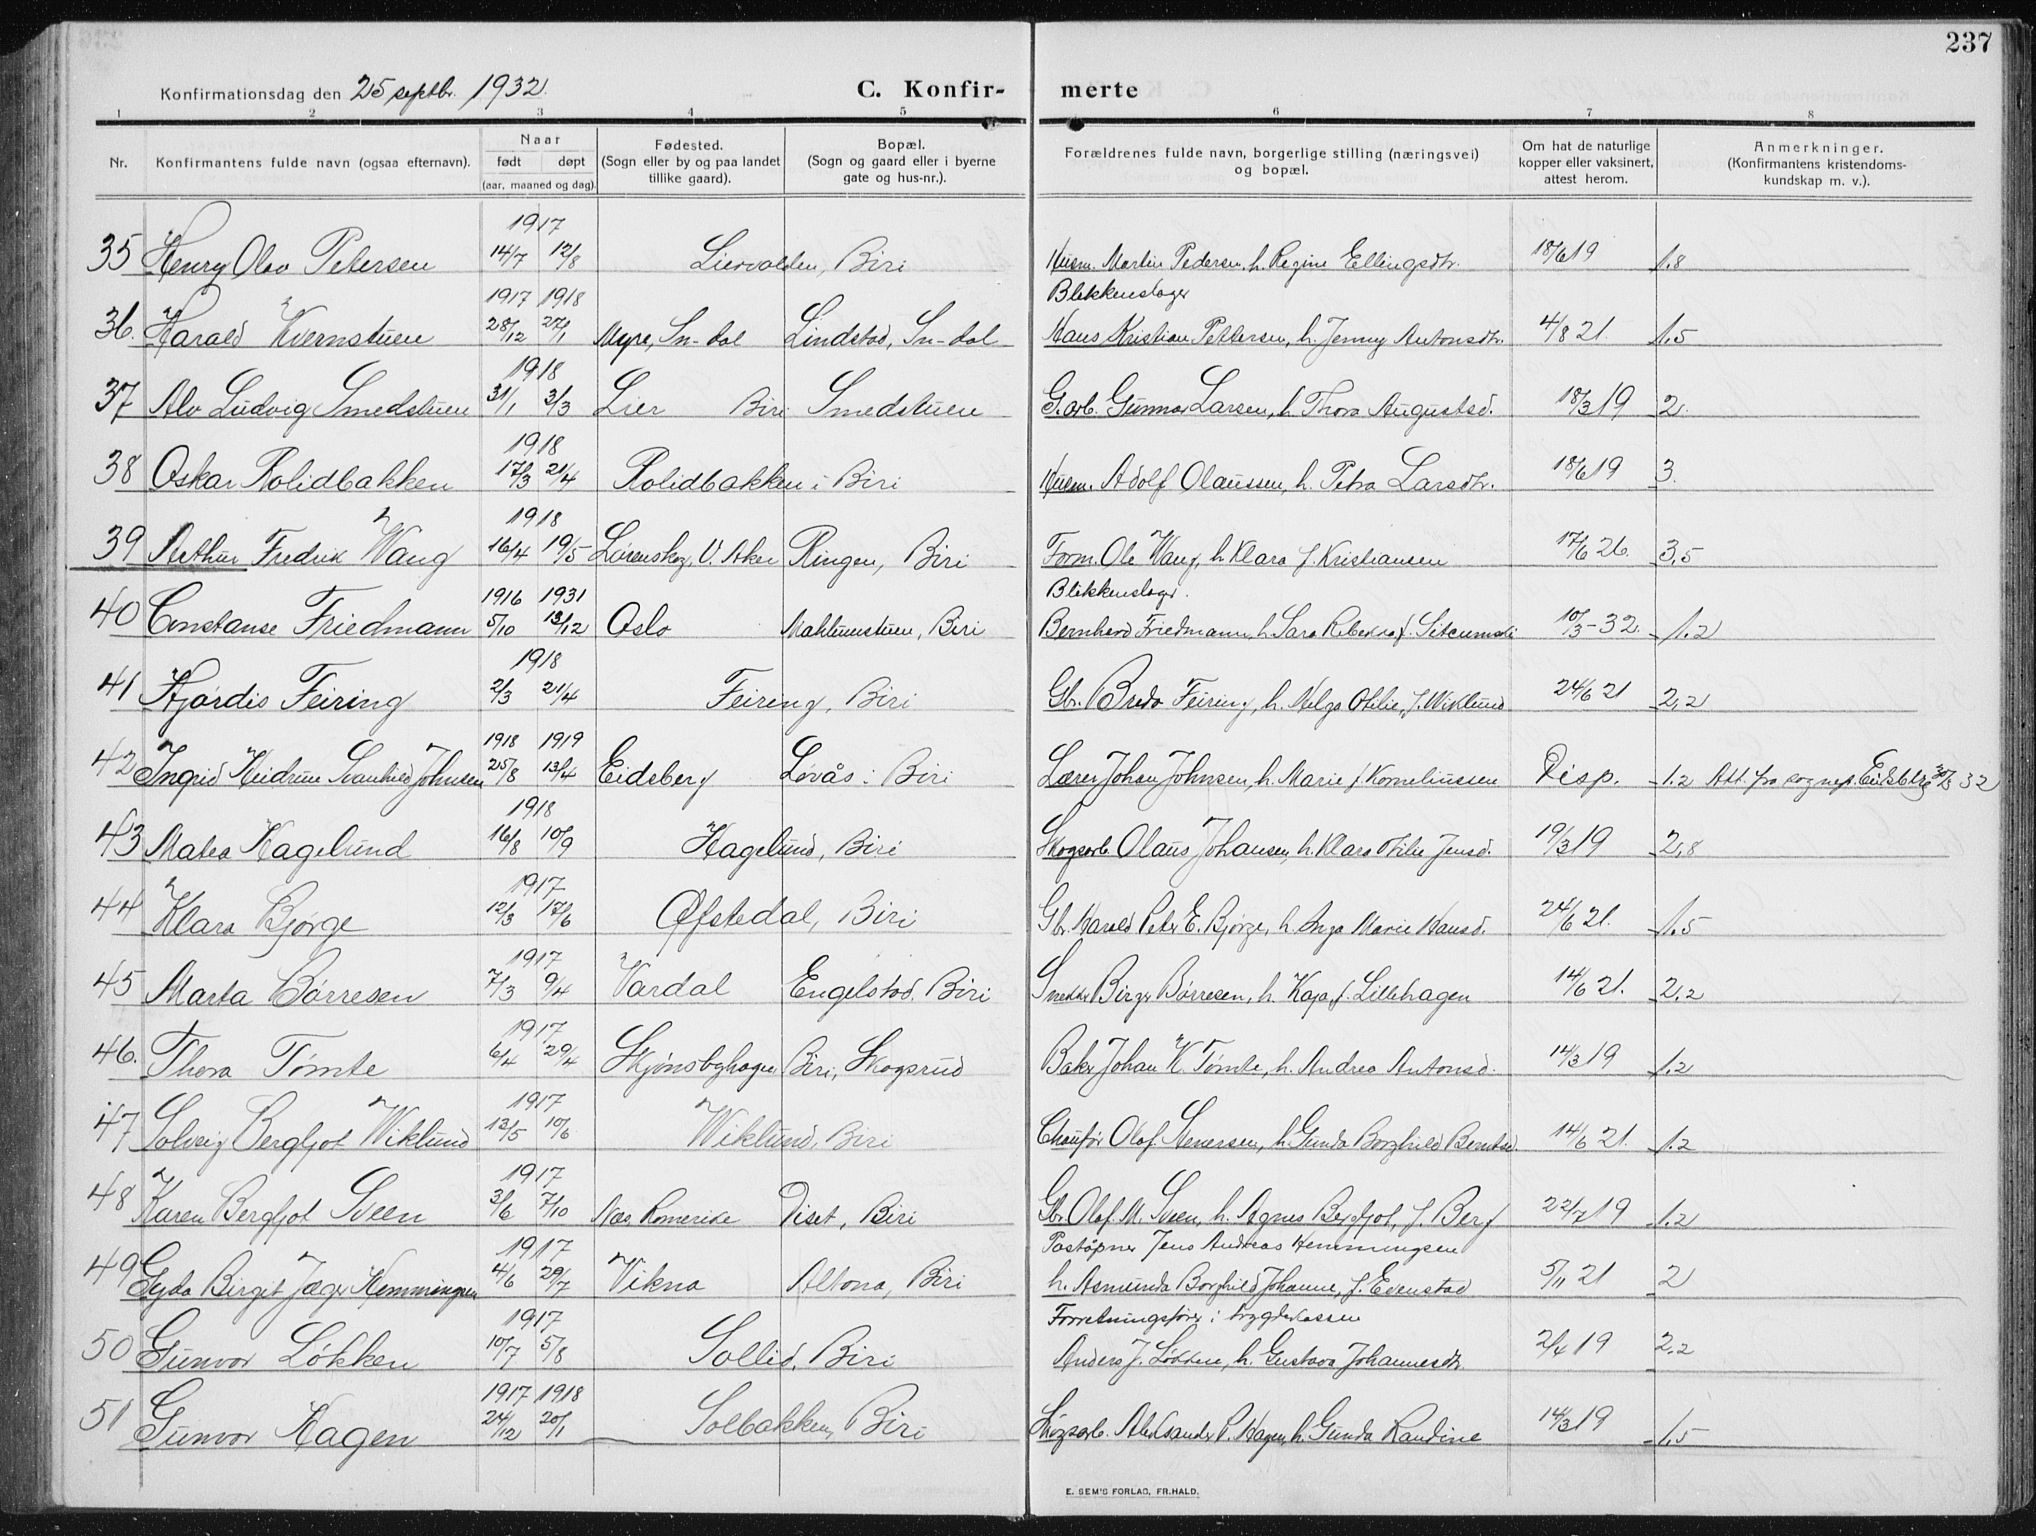 237
Konfirmationsdag den 25 septbr. 1932.
C. Konfir- merte
1 2 3 4 5 6 7 8
Nr. Konfirmantens fulde navn (ogsaa efternavn). Naar født døpt (aar, maaned og dag). Fødested. (Sogn eller by og paa landet tillike gaard). Bopæl. (Sogn og gaard eller i byerne gate og hus-nr.). Forældrenes fulde navn, borgerlige stilling (næringsvei) og bopæl. Om hat de naturlige kopper eller vaksinert, attest herom. Anmerkninger. (Konfirmantens kristendoms-kundskap m. v.).
1917
35 Henry Olav Petersen 14/7 12/8 Liervolden, Biri Husm. Martin Pedersen, h. Regine Ellingsdtr. 18/6 19 1.8
1917 1918 Blikkenslager
36. Harald Kvernstuen 28/12 27/1 Myre, Sn-dal Lindstad, Sn-dal Hans Kristian Pettersen, h. Jenny Antonsdtr. 4/8 21. 1.5
1918
37 Alv Ludvig Smedstuen 31/1 3/3 Lier Biri Smedstuen G.arb. Gunnar Larsen, h. Thora Augustsd. 18/3 19 2.
1918
38 Oskar Rolidbakken 17/3 21/4 Rolidbakken i Biri Husm. Adolf Olaussen, h. Petra Larsdtr. 18/6 19 3.
1918
39 Arthur Fredrik Wang 16/4 19/5 Lørenskog, Ø. Aker Ringen, Biri Form. Ole Wang, h. Klara f. Kristiansen 17/6 26. 3,5
1916 1931 Blikkenslager.
40 Constanse Friedmann 5/10 13/12 Oslo Mahlumstuen, Biri Bernhard Friedmann, h. Sara Rebekka f. 10/3-32. 1.2
1918
41 Hjørdis Feiring 2/3 21/4 Feiring, Biri Gbr. Bredo Feiring, h. Helga Otilie, f. Wiklund 24/6 21 2,2
1918 1919
42 Ingrid Heidrun Svanhild Johnsen 25/8 13/4 Eidsberg Løvås i Biri Lærer Johan Johnsen, h. Marie f. Korneliussen Disp. 1.2 Att. fra sognepr. Eidsberg 30/8 32
1918
43 Matea Hagelund 16/8 10/9 Hagelund, Biri Skogsarb. Olaus Johansen, h. Klara Otilie Jensd. 19/3 19 2,8
1917
44 Klara Bjørge 12/3 17/6 Øfstedal, Biri Gbr. Harald Peter E. Bjørge, h. Inga Marie Hansd. 24/6 21. 1.5
1917
45 Marta Børresen 7/3 9/4 Vardal Engelstad, Biri Snekker Birger Børresen, h. Kaja f. Lillehagen 14/6 21. 2,2
1917
46. Thora Tømte 6/4 29/4 Skjønsbghagen Biri, Skogsrud Baker Johan K. Tømte, h. Andrea Antonsd. 14/3 19 1.2
1917
47 Solveig Bergljot Wiklund 13/5 10/6 Wiklund, Biri Chaufør Olaf Stenersen, h. Gunda Borghild Berntsd. 14/6 21. 1.2
1917
48 Karen Bergljot Sveen 3/6 7/10 Nes Romerike Diset, Biri Gbr. Olaf M. Sveen, h. Agnes Bergljot, f. Berg 22/7 19 1.2
1917 Postøpner Jens Andreas Hemmingsen
49 Gyda Birgit Jæger Hemmingsen 4/6 29/7 Vikna Altona, Biri h. Asmunda Borghild Johanne, f. Evenstad 5/11 21 2
1917 Forretningsfører i trygdekassen
50 Gunvor Løkken 10/7 5/8 Sollid, Biri Anders J. Løkken, h. Gustava Johannesdtr. 2/4 19 2.2
1917 1918
51 Gunvor Hagen 24/12 20/1 Solbakken, Biri Skogsarb. Aleksander P. Hagen, h. Gunda Randine 14/3 19 1,5
E. SEM'S FORLAG, FR.HALD.